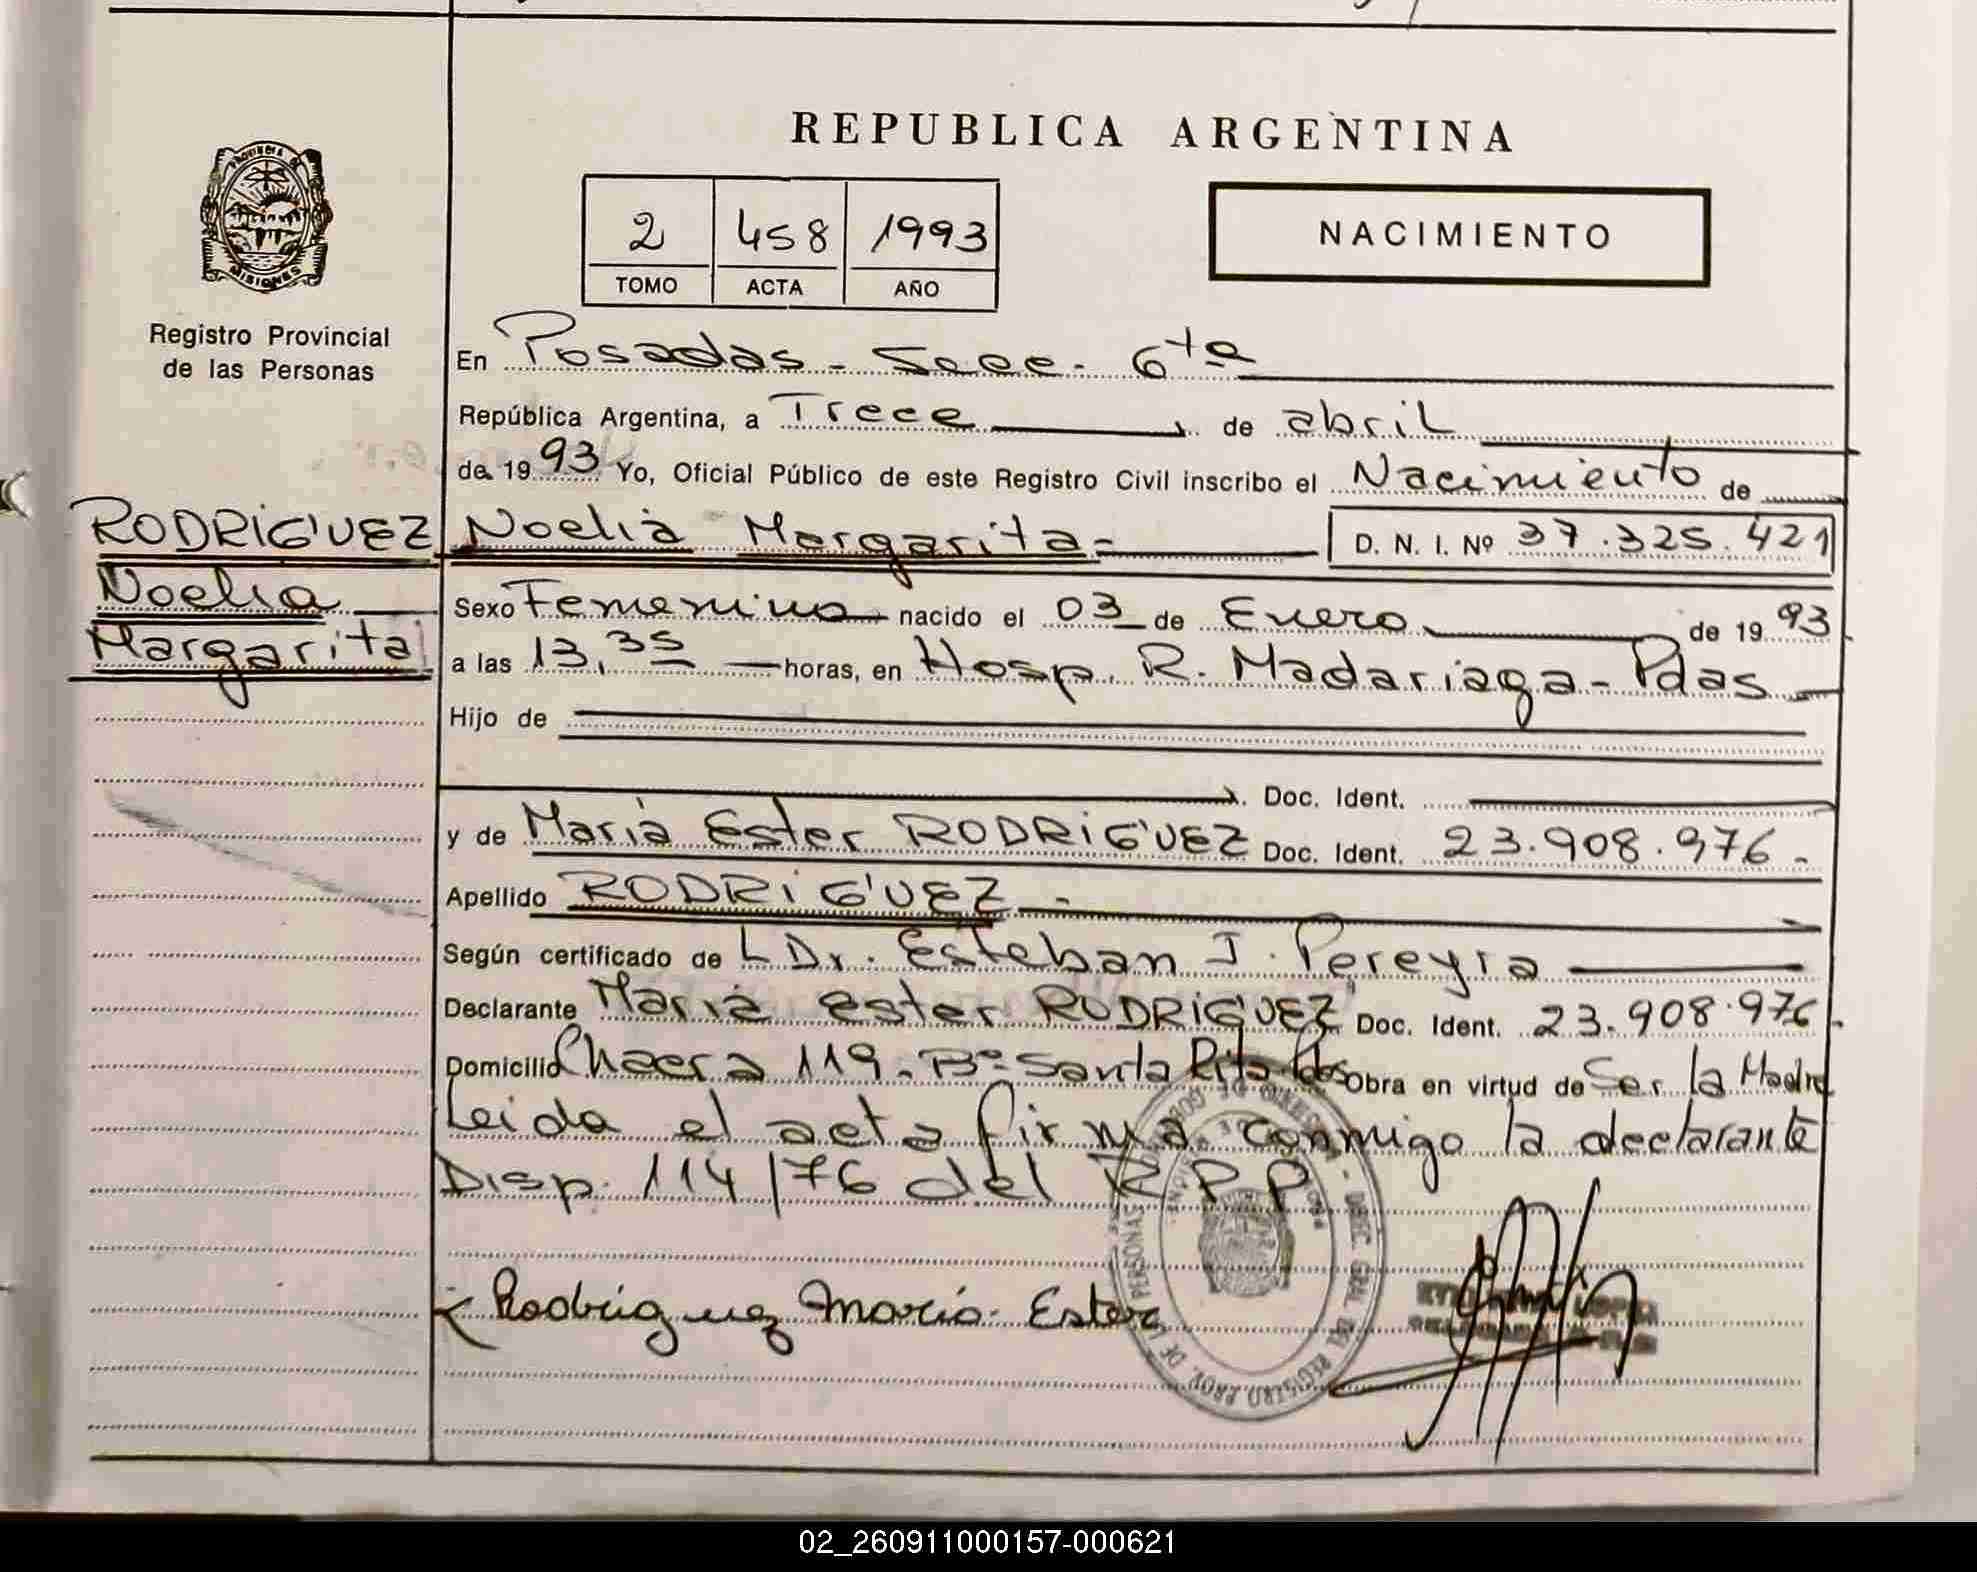 REPUBLICA ARGENTINA
PROVINCIA DE
MISIONES
Registro Provincial
de las Personas
2 458 1993
TOMO ACTA AÑO
NACIMIENTO
En Posadas - Secc. 6ta
República Argentina, a Trece de abril
de 19 93 Yo, Oficial Público de este Registro Civil inscribo el Nacimiento de
RODRIGUEZ
Noelia
Margarita
Noelia Margarita - D. N. I. Nº 37.325.421
Sexo Femenino nacido el 03 de Enero de 19 93
a las 13,35 horas, en Hosp. R. Madariaga - Pdas
Hijo de
Doc. Ident.
y de Maria Ester RODRIGUEZ Doc. Ident. 23.908.976 -
Apellido RODRIGUEZ -
Según certificado de L Dr. Esteban J. Pereyra
Declarante Maria Ester RODRIGUEZ Doc. Ident. 23.908.976 -
Domicilio Chacra 119 - Bº Santa Rita Pdas Obra en virtud de Ser la Madre
Leida el acta firma conmigo la declarante
Disp. 114/76 del R P P
Rodriguez Maria Ester
DIREC. GRAL. DEL REGISTRO PROV. DE LAS PERSONAS
02_260911000157-000621